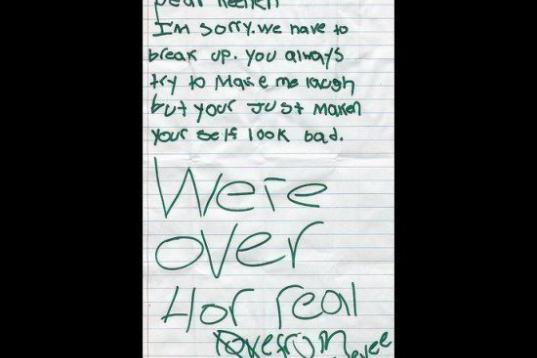 Dear
I'm sorry. we have to
break up. you always
try to make me laugh
but your Just maken
your self look bad.
Were
over
4or real